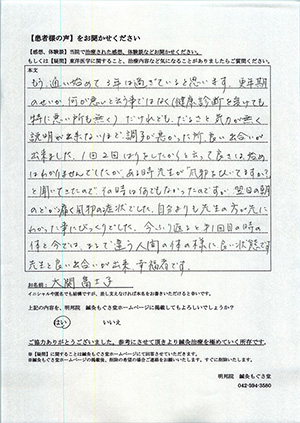 【患者様の声】をお聞かせください
【感想、体験談】当院で治療された感想、体験談などお聞かせください。
もしくは【疑問】東洋医学に関すること、治療内容など気になることがありましたらご質問ください。
本文
もう、通い始めて3年は過ぎていると思います。更年期
のせいか、何が悪いと云う事ではなく(健康診断を受けても
特に悪い所も無く)だけれども、だるさと気力が無く
説明が出来ないほど、調子が悪かった所、良い出合いが
出来ました。1回2回はりをしたから云って良さは始め
はわかりませんでしたが、ある時先生が「風邪をひいてますか?」
と聞いてきたので、その時は何でもなかったのですが、翌日の朝
のどが痛く風邪の症状でした。自分よりも先生の方が先に
わかった事にびっくりでした。今ふり返ると1回目の時の
体と今では、まるで違う人間の体の様に良い状態です。
先生と良い出合いが出来、幸福者です。
お名前:大関富士子
イニシャルや匿名でも結構ですが、差し支えなければ本名をお書きいただけると幸いです。
上記の内容を、明邦院 鍼灸もぐさ堂ホームページに掲載してもよろしいでしょうか?
はい いいえ
ご協力ありがとうございました。参考にさせて頂きより鍼灸治療を極めていく所存です。
※【疑問】に関することは鍼灸もぐさ堂ホームページにて回答させていただきます。
※鍼灸もぐさ堂ホームページの掲載後、削除の希望の場合ご連絡をお願いします。すぐに削除いたします。
明邦院 鍼灸もぐさ堂
042-594-3580